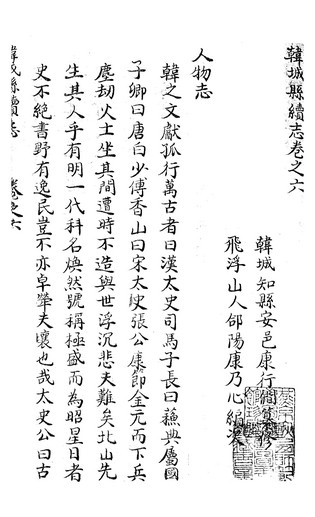 韓城縣續志卷之六
韓城知縣安邑康行僴
飛浮山人郃陽康乃心編
人物志
韓之文獻孤行萬古者曰漢太史司馬子長曰蘓典屬國
子卿曰唐白少傅香山曰宋太史張公康節金元而下兵
塵劫火士坐其間遭時不造與世浮沉悲夫難矣北山先
生其人乎有明一代科名煥然號稱極盛而為昭星日者
史不絶書野有逸民豈不亦卓犖夫壤也哉太史公曰古
韓城縣續志 卷之六